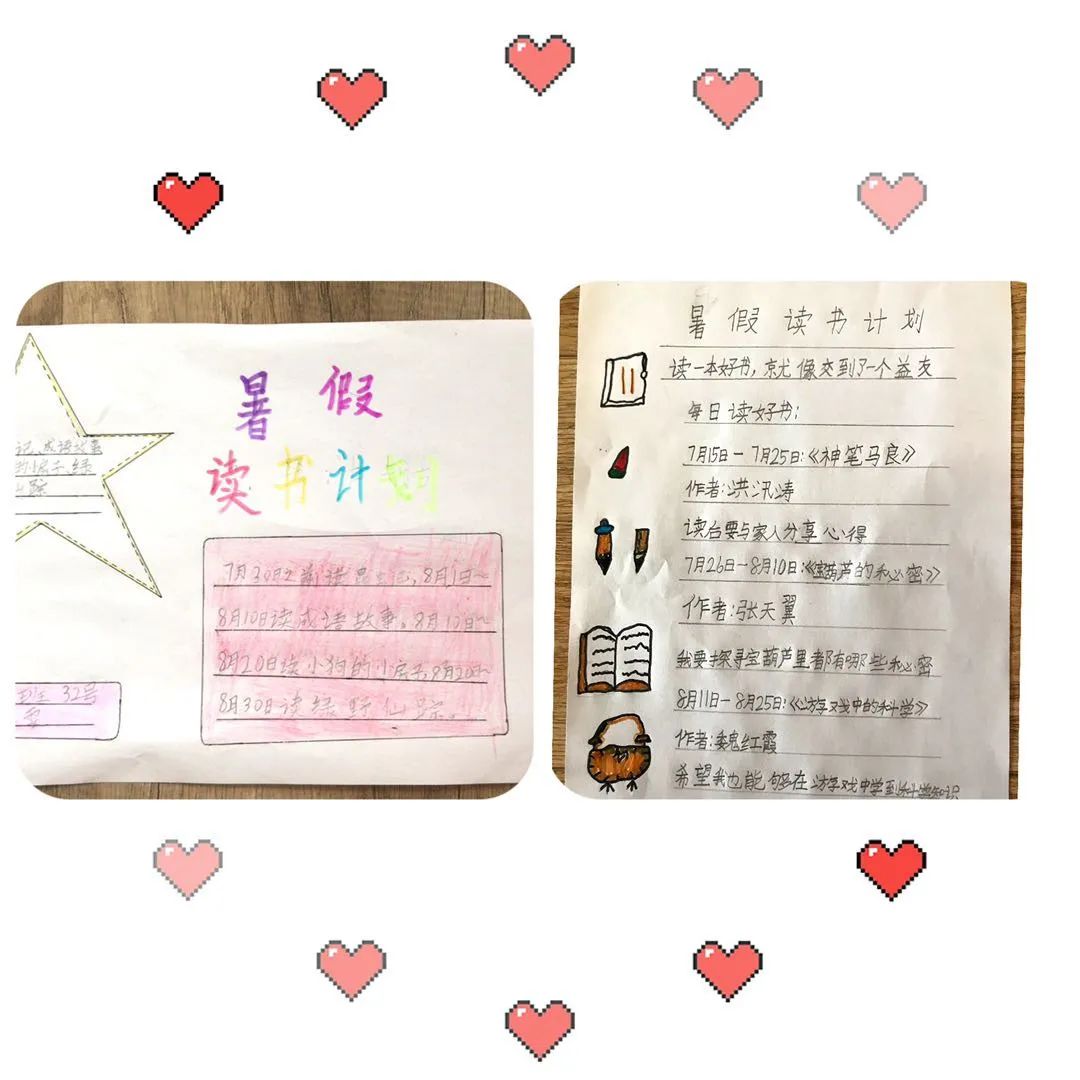 暑假
读书计划
记、成语故事
绿
7月30日之前读昆虫记,8月1日~
8月10日读成语故事。8月10日~
8月20日读小狗的小房子,8月20日~
8月30日读绿野仙踪。
班 32号
暑假读书计划
读一本好书,就像交到了一个益友
每日读好书:
7月15日-7月25日:《神笔马良》
作者:洪汛涛
读后要与家人分享心得
7月26日-8月10日:《宝葫芦的秘密》
作者:张天翼
我要探寻宝葫芦里都有哪些秘密
8月11日-8月25日:《游戏中的科学》
作者:魏红霞
希望我也能够在游戏中学到科学知识